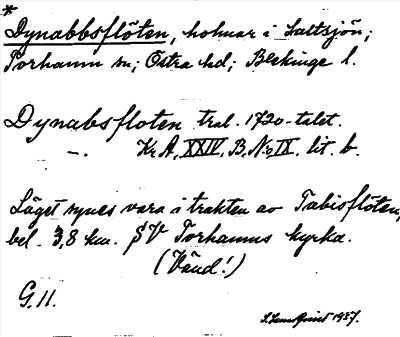 *
Dynabbsflöten, holmar i Saltsjön;
Torhamn sn; Östra hd; Blekinge l.
Dynabsfloten tral. 1720-talet.
—. Kr.A, XXIV, B, No IX. lit. b.
Läget synes vara i trakten av Tabisflöten,
bel. 3,8 km. SV Torhamns kyrka.
(Vänd!)
G.11.
1957.